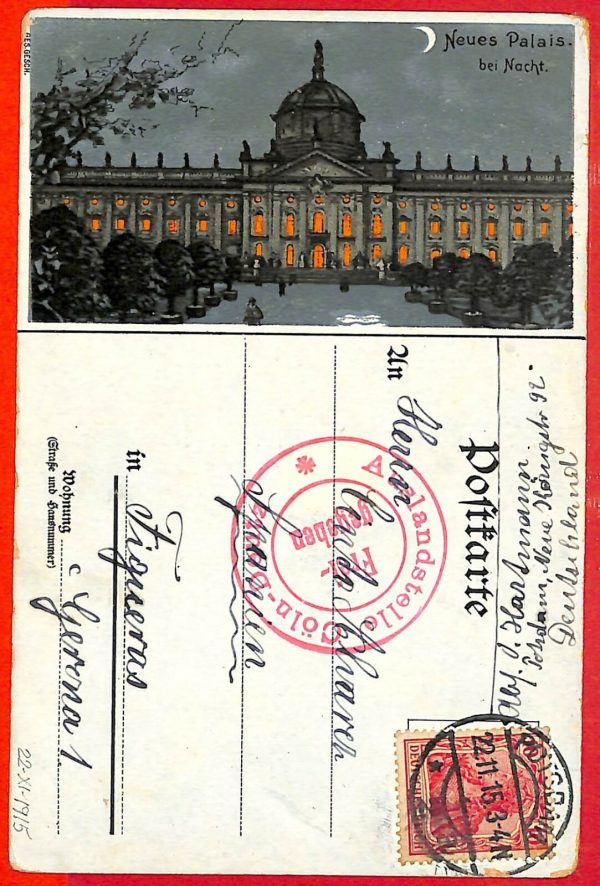 RES. GESCH.
Neues Palais.
bei Nacht.
Postkarte
Abs. J. Hartmann
Potsdam, Neue Königstr 92
Deutschland
An Herrn
Spanien
in Figueras
Wohnung c Gerona 1
(Straße und Hausnummer)
Auslandstelle Cöln-D
Frei-
gegeben
22.11.15.3-4N
DEUTSCHES
22-XI-1915